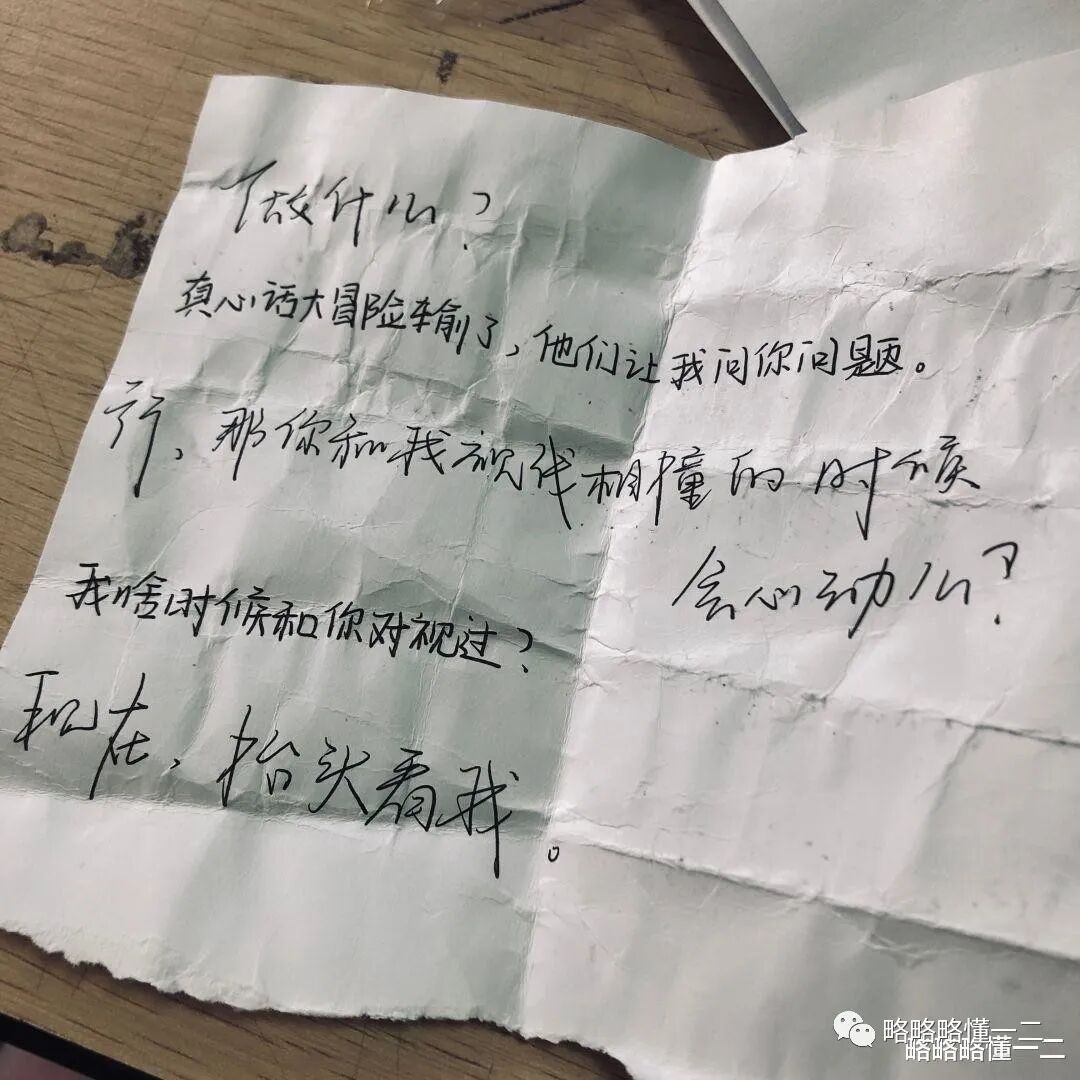 做什么?
真心话大冒险输了,他们让我问你问题。
行、那你和我视线相撞的时候
会心动么?
我啥时候和你对视过?
现在,抬头看我。
略略略懂一二
略略略懂一二